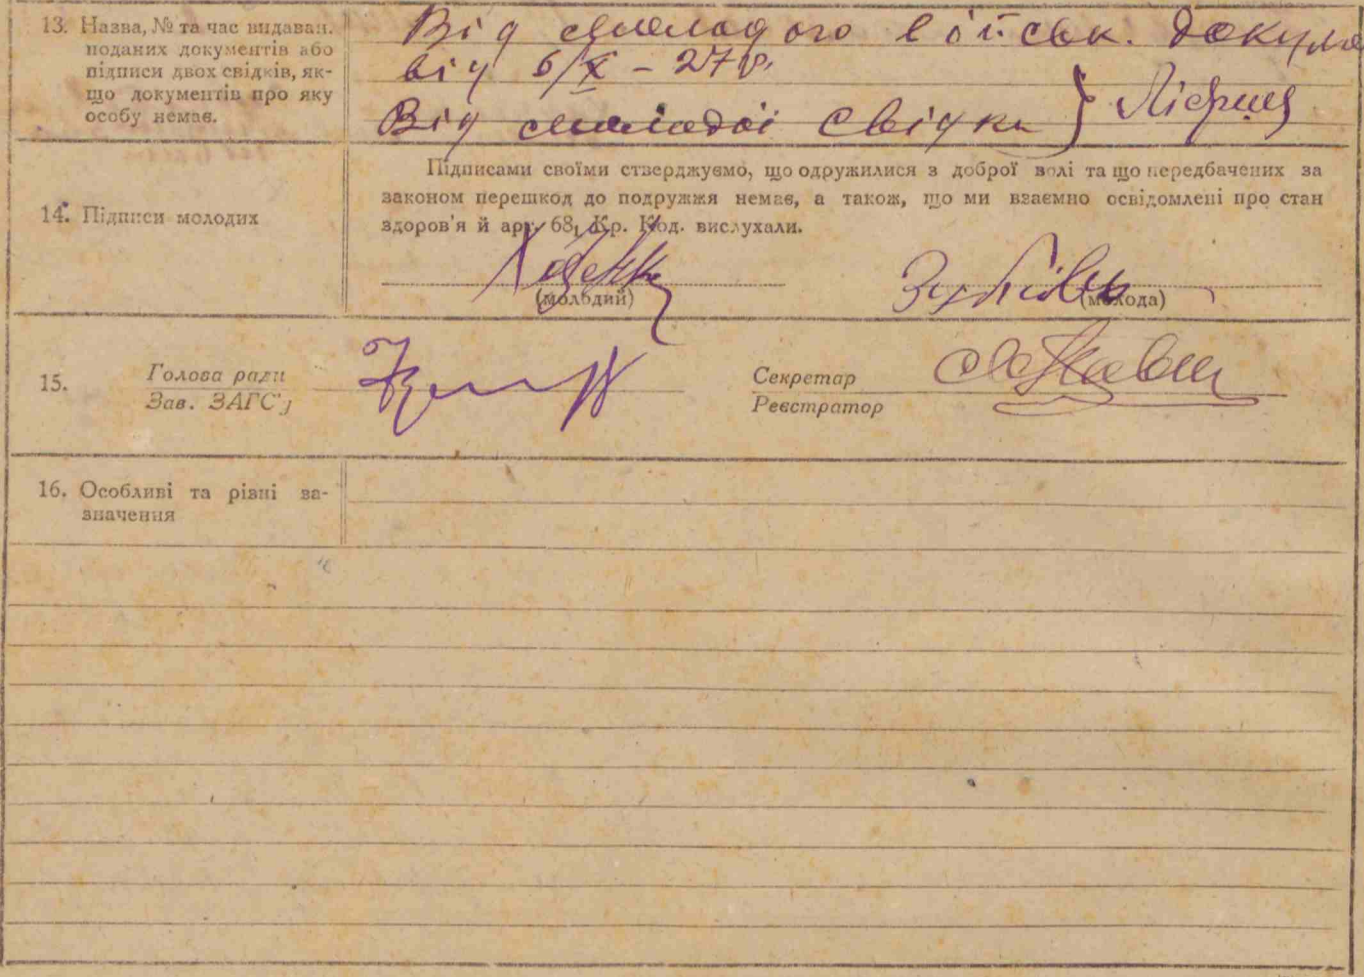 13. Назва, № та час видаван.
поданих документів або
підписи двох свідків, як-
що документів про яку
особу немає.
Від молодого військ. докум
від 6/X – 27 р.
Від молодої свідки }
14. Підписи молодих
Підписами своїми стверджуємо, що одружилися з доброї волі та що передбачених за
законом перешкод до подружжя немає, а також, що ми взаємно освідомлені про стан
здоров'я й арт. 68₁ Кр. Код. вислухали.
(молодий)
(молода)
15. Голова ради
Зав. ЗАГС'у
Секретар
Реєстратор
16. Особливі та різні за-
значення